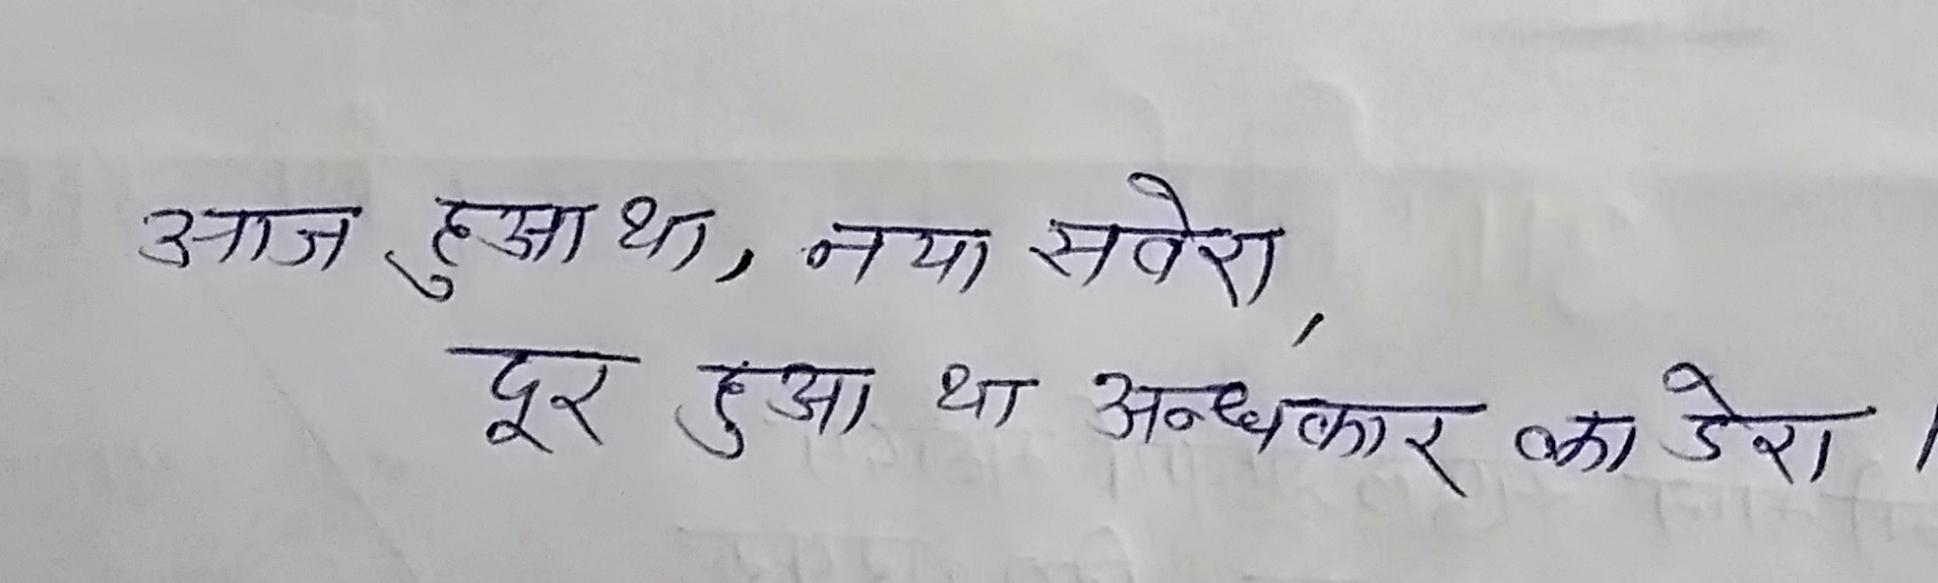 आज हुआ था, नया सवेरा,
दूर हुआ था अन्धकार का डेरा।